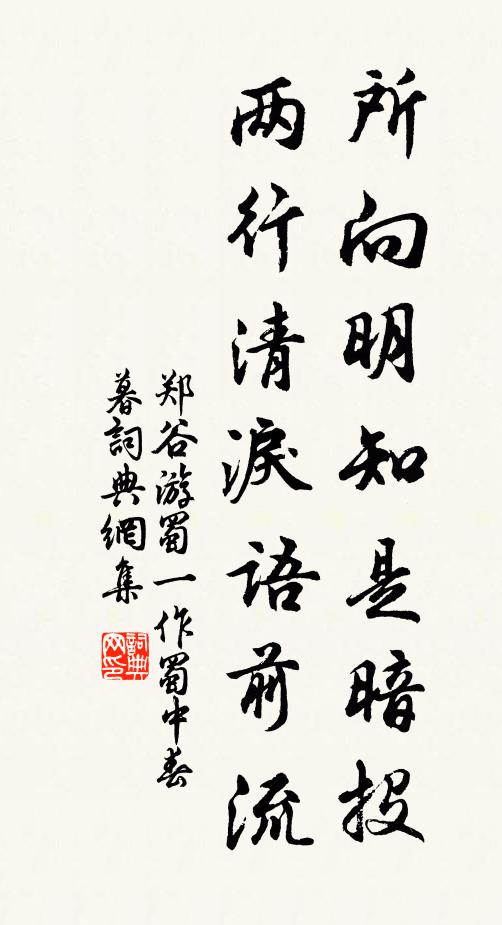 所向明知是暗投
两行清淚語前流
郑谷游蜀一作蜀中春
暮詞典網集
詞典网印